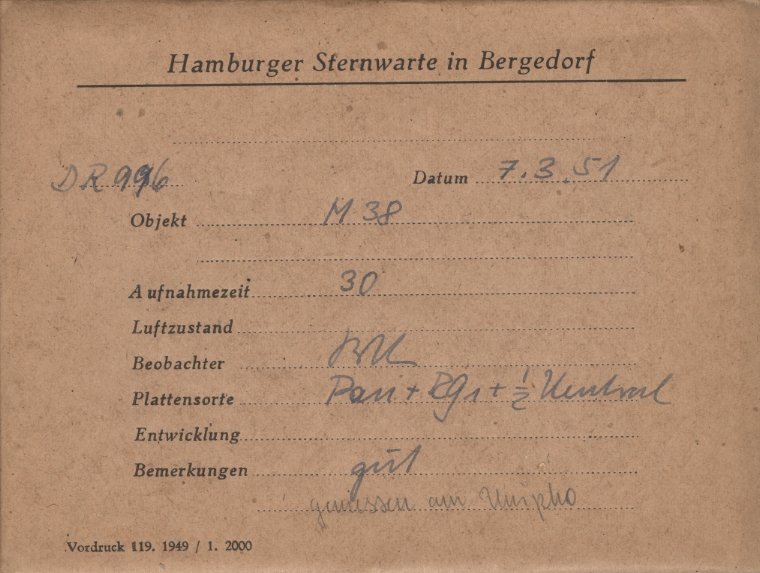 Hamburger Sternwarte in Bergedorf
DR 996 Datum 7.3.51
Objekt M 38
Aufnahmezeit 30
Luftzustand
Beobachter
Plattensorte Pan + RG1 + ½ Neutral
Entwicklung
Bemerkungen gut
gemessen am
Vordruck 119. 1949 / 1. 2000